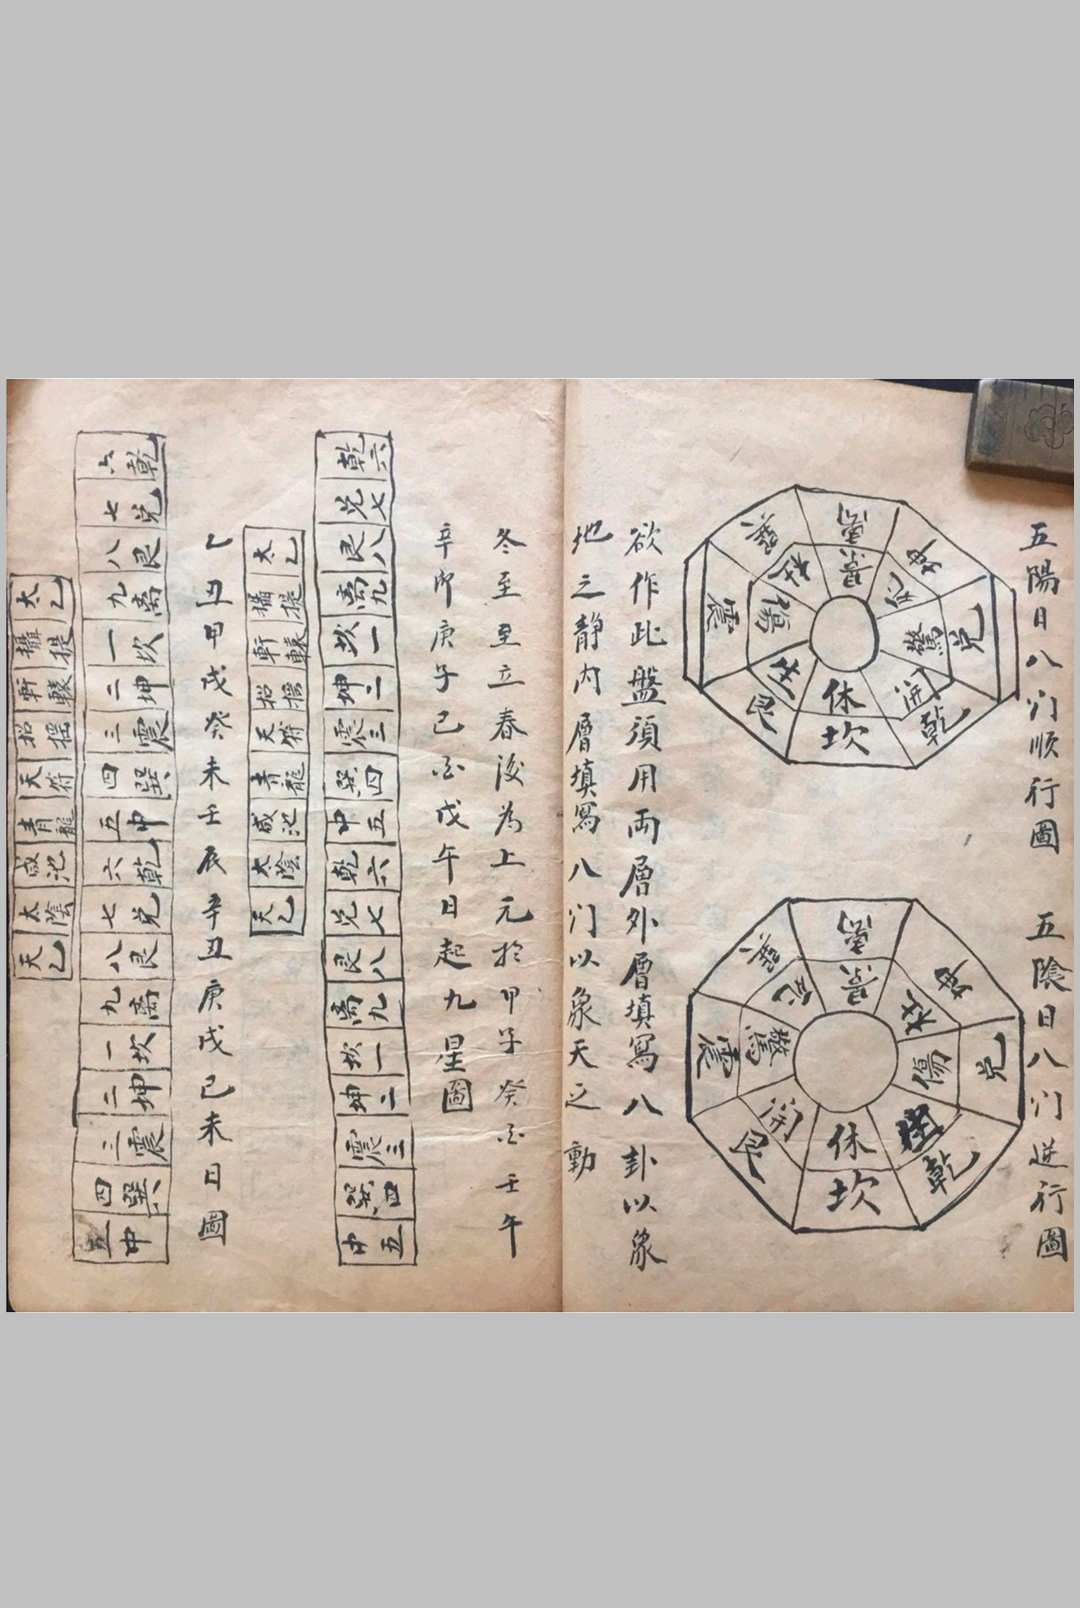 五陽日八门順行圖
五陰日八门逆行圖
離
坤
兌
乾
坎
艮
震
巽
景
死
驚
開
休
生
傷
杜
離
坤
兌
乾
坎
艮
震
巽
景
杜
傷
生
休
開
驚
死
欲作此盤須用両層外層填寫八卦以象
地之静内層填寫八门以象天之動
冬至至立春後為上元於甲子癸酉壬午
辛卯庚子己酉戊午日起九星圖
乾六
兌七
艮八
離九
坎一
坤二
震三
巽四
中五
乾六
兌七
艮八
離九
坎一
坤二
震三
巽四
中五
太乙
攝提
軒轅
招摇
天符
青龍
咸池
太陰
天乙
乙丑甲戌癸未壬辰辛丑庚戌己未日圖
乾六
兌七
艮八
離九
坎一
坤二
震三
巽四
中五
乾六
兌七
艮八
離九
坎一
坤二
震三
巽四
中五
太乙
攝提
軒轅
招摇
天符
青龍
咸池
太陰
天乙